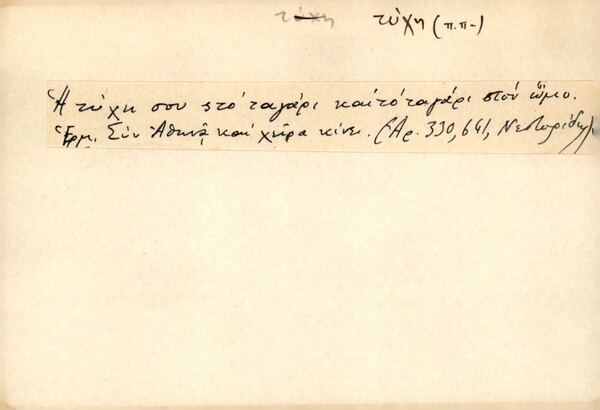 τύχη τύχη (π.π-)
Ἡ τύχη σου στό ταγάρι καί τό ταγάρι στόν ὦμο.
Ἑρμ. Σύν Ἀθηνᾷ καί χεῖρα κίνει. (Ἀρ. 330, 641, Νεστορίδης)